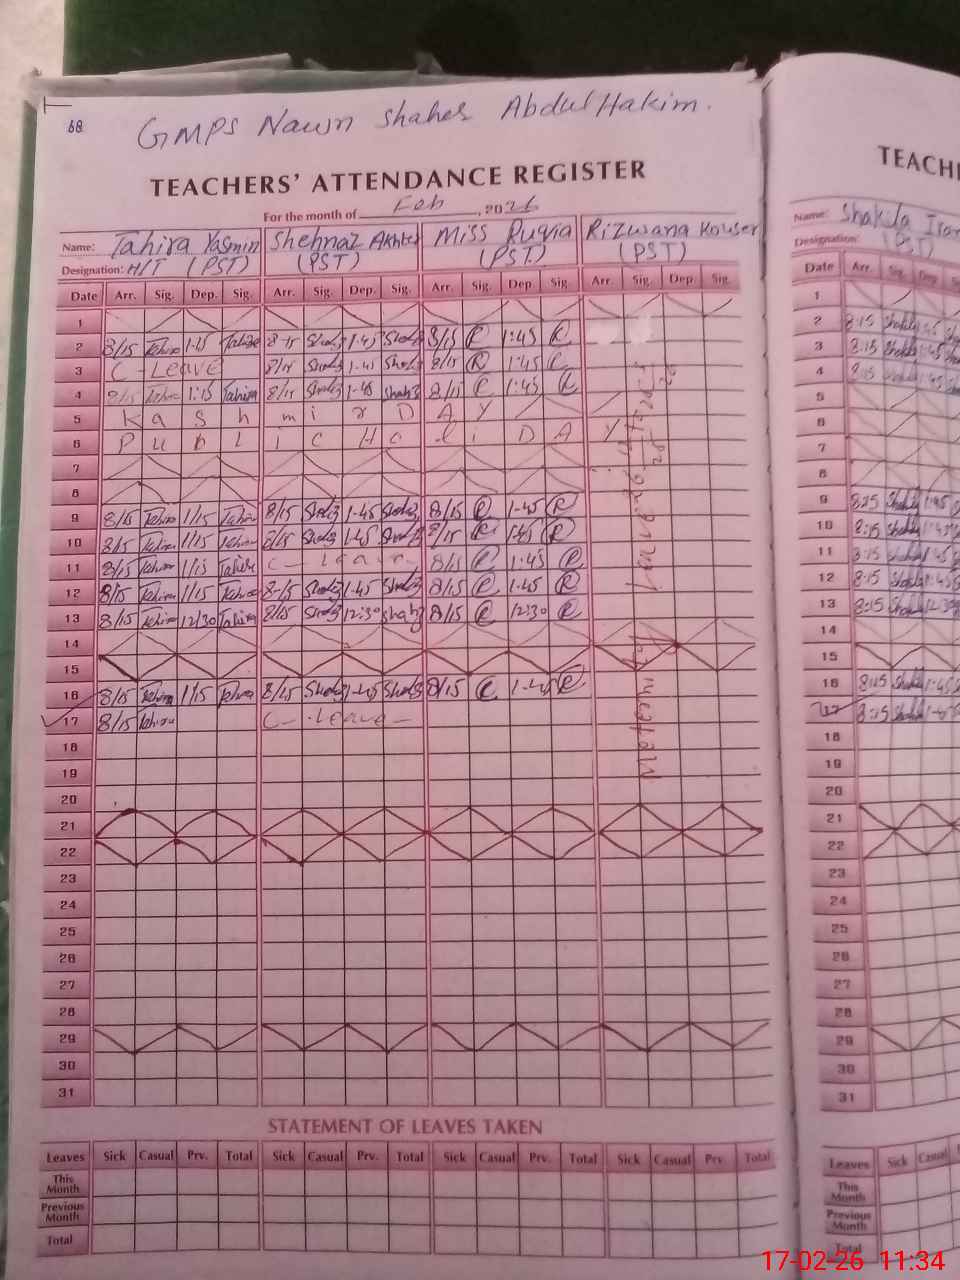 68
GMPS Nawn Shaher Abdul Hakim.
TEACHERS' ATTENDANCE REGISTER
For the month of Feb, 2026
Name: Tahira Yasmin Shehnaz Akhter Miss Ruqia Rizwana Kouser
Designation: H/T (PST) (PST) (PST) (PST)
Date Arr. Sig. Dep. Sig. Arr. Sig. Dep. Sig. Arr. Sig. Dep Sig. Arr. Sig. Dep Sig.
1
2 8/15 Tahira 1-15 Tahira 8-15 Shahz 1-45 Shahz 8/15 R 1:45 R
3 C-Leave 8/15 Shahz 1-45 Shahz 8/15 R 1:45 R
4 8/15 Tahira 1:15 Tahira 8/15 Shahz 1-45 Shahz 8/15 R 1:45 R
5 Kashmir DAY
6 Public HoliDAY
7
8
9 8/15 Tahira 1/15 Tahira 8/15 Shahz 1-45 Shahz 8/15 R 1-45 R
10 8/15 Tahira 1/15 Tahira 8/15 Shahz 1-45 Shahz 8/15 R 1:45 R
11 8/15 Tahira 1/15 Tahira C-Leave 8/15 R 1:45 R
12 8/15 Tahira 1/15 Tahira 8-15 Shahz 1-45 Shahz 8/15 R 1-45 R
13 8/15 Tahira 12/30 Tahira 8/15 Shahz 12:30 Shahz 8/15 R 12:30 R
14
15
16 8/15 Tahira 1/15 Tahira 8/15 Shahz 1-45 Shahz 8/15 R 1-45 R
17 8/15 Tahira C-Leave-
18
19
20
21
22
23
24
25
26
27
28
29
30
31
Maternity Leave
STATEMENT OF LEAVES TAKEN
Leaves Sick Casual Prv. Total Sick Casual Prv. Total Sick Casual Prv. Total Sick Casual Prv. Total
This Month
Previous Month
Total
TEACH
Name: Shakila
Designation: (PST)
Date Arr. Sig. Dep
1
2 8:15 Shakila 1:45
3 8:15 Shakila 1:45
4 8:15 Shakila 1:45
5
6
7
8
9 8:15 Shakila 1:45
10 8:15 Shakila 1:45
11 8:15 Shakila 1:45
12 8:15 Shakila 1:45
13 8:15 Shakila 12:30
14
15
16 8:15 Shakila 1:45
17 8:15 Shakila
18
19
20
21
22
23
24
25
26
27
28
29
30
31
Leaves Sick Casual
This Month
Previous Month
Total
17-02-26 11:34